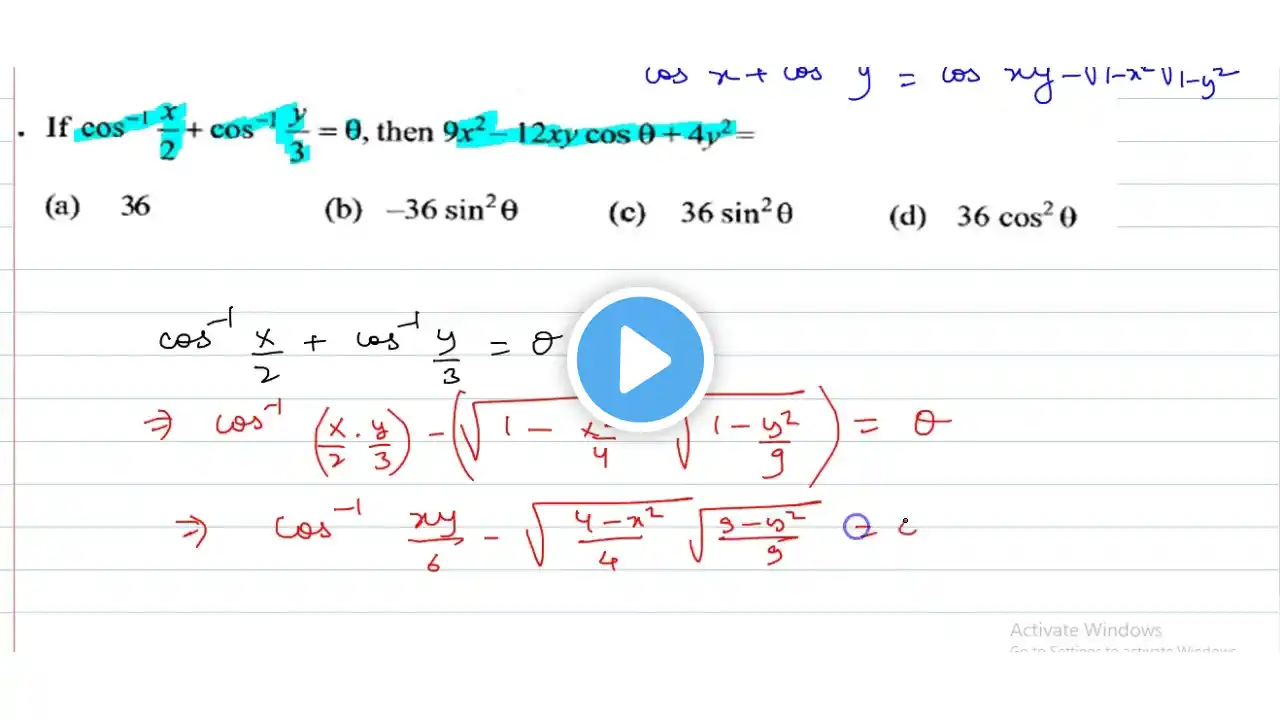 cos x + cos y = cos xy - √1-x² √1-y²
. If cos⁻¹ x/2 + cos⁻¹ y/3 = θ, then 9x² – 12xy cos θ + 4y² =
(a) 36 (b) –36 sin² θ (c) 36 sin² θ (d) 36 cos² θ
cos⁻¹ x/2 + cos⁻¹ y/3 = θ
⇒ cos⁻¹ (x/2 · y/3) - (√1 - x²/4 √1 - y²/9) = θ
⇒ cos⁻¹ xy/6 - √4-x²/4 √9-y²/9 =
Activate Windows
Go to Settings to activate Windows.